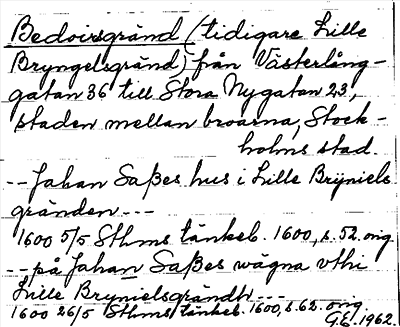 Bedoirsgränd (tidigare Lille
Bryngelsgränd) från Västerlång-
gatan 36 till Stora Nygatan 23,
staden mellan broarna, Stock-
holms stad.
-- Jahan Saßes hus i Lille Brÿniels
gränden ---
1600 5/5 Sthms tänkeb. 1600, s. 52. orig
-- på Jahan Saßes wägna vthi
Lille Brynielsgrändh ---
1600 26/5 Sthms tänkeb. 1600, s. 62. orig.
G.E. 1962.